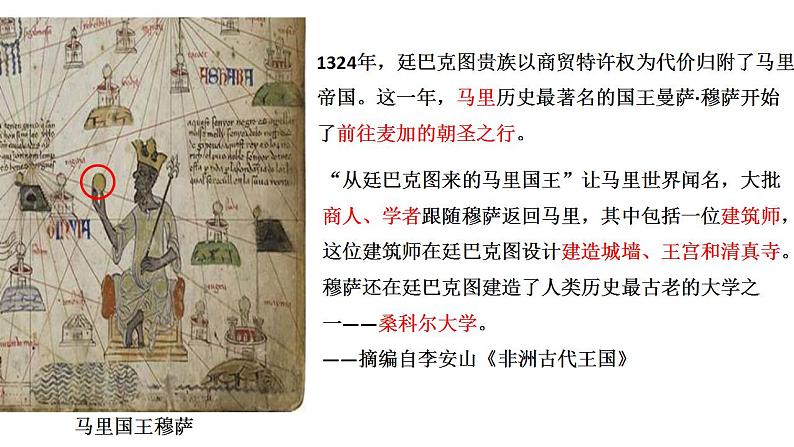 1324年，廷巴克图贵族以商贸特许权为代价归附了马里
帝国。这一年，马里历史最著名的国王曼萨·穆萨开始
了前往麦加的朝圣之行。
“从廷巴克图来的马里国王”让马里世界闻名，大批
商人、学者跟随穆萨返回马里，其中包括一位建筑师，
这位建筑师在廷巴克图设计建造城墙、王宫和清真寺。
穆萨还在廷巴克图建造了人类历史最古老的大学之
一——桑科尔大学。
——摘编自李安山《非洲古代王国》
马里国王穆萨